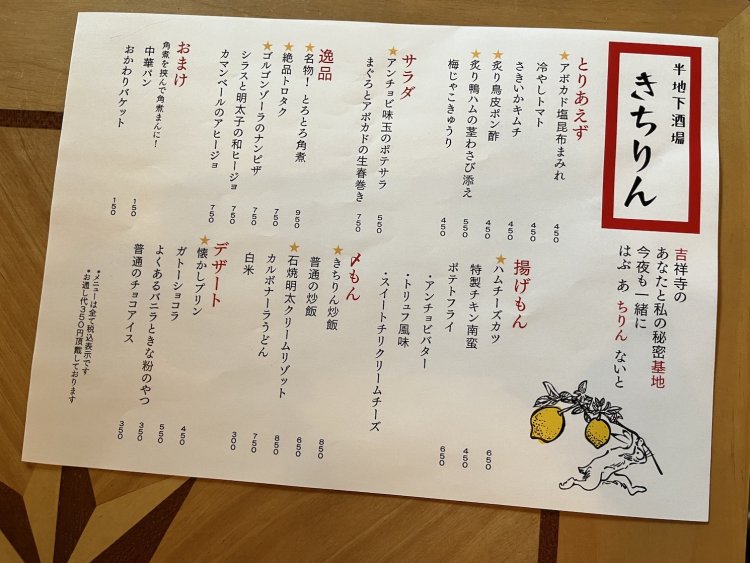 半地下酒場
きちりん
吉祥寺の
あなたと私の秘密基地
今夜も一緒に
はぶ あ ちりん ないと
とりあえず
★アボカド塩昆布まみれ 450
冷やしトマト 450
さきいかキムチ 450
★炙り鳥皮ポン酢 450
★炙り鴨ハムの茎わさび添え 550
梅じゃこきゅうり 450
サラダ
★アンチョビ味玉のポテサラ 550
まぐろとアボカドの生春巻き 750
逸品
★名物！とろとろ角煮 950
★絶品トロタク 750
★ゴルゴンゾーラのナンピザ 750
シラスと明太子の和ヒージョ 750
カマンベールのアヒージョ 750
おまけ
角煮を挟んで角煮まんに！
中華パン 150
おかわりバケット 150
揚げもん
★ハムチーズカツ 650
特製チキン南蛮 450
ポテトフライ 650
・アンチョビバター
・トリュフ風味
・スイートチリクリームチーズ
〆もん
★きちりん炒飯 850
普通の炒飯 650
★石焼明太クリームリゾット 850
カルボナーラうどん 750
白米 300
デザート
★懐かしプリン 450
ガトーショコラ 550
よくあるバニラときな粉のやつ 350
普通のチョコアイス 350
*メニューは全て税込表示です
*お通し代350円頂戴しております